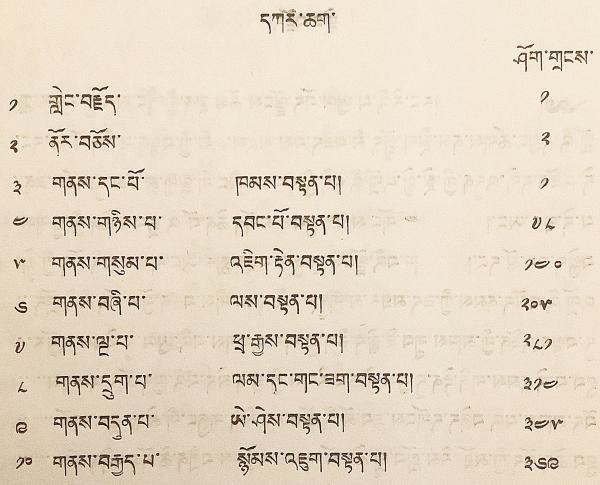 དཀར་ཆག་
ཤོག་གྲངས་
༡ གླེང་བརྗོད་ ༡
༢ ནོར་བཅོས་ ༢
༣ གནས་དང་པོ་ ཁམས་བསྟན་པ། ༡
༤ གནས་གཉིས་པ་ དབང་པོ་བསྟན་པ། ༧༨
༥ གནས་གསུམ་པ་ འཇིག་རྟེན་བསྟན་པ། ༡༤༠
༦ གནས་བཞི་པ་ ལས་བསྟན་པ། ༢༠༥
༧ གནས་ལྔ་པ་ ཕྲ་རྒྱས་བསྟན་པ། ༢༨༡
༨ གནས་དྲུག་པ་ ལམ་དང་གང་ཟག་བསྟན་པ། ༣༡༤
༩ གནས་བདུན་པ་ ཡེ་ཤེས་བསྟན་པ། ༣༤༥
༡༠ གནས་བརྒྱད་པ་ སྙོམས་འཇུག་བསྟན་པ། ༣༦༩